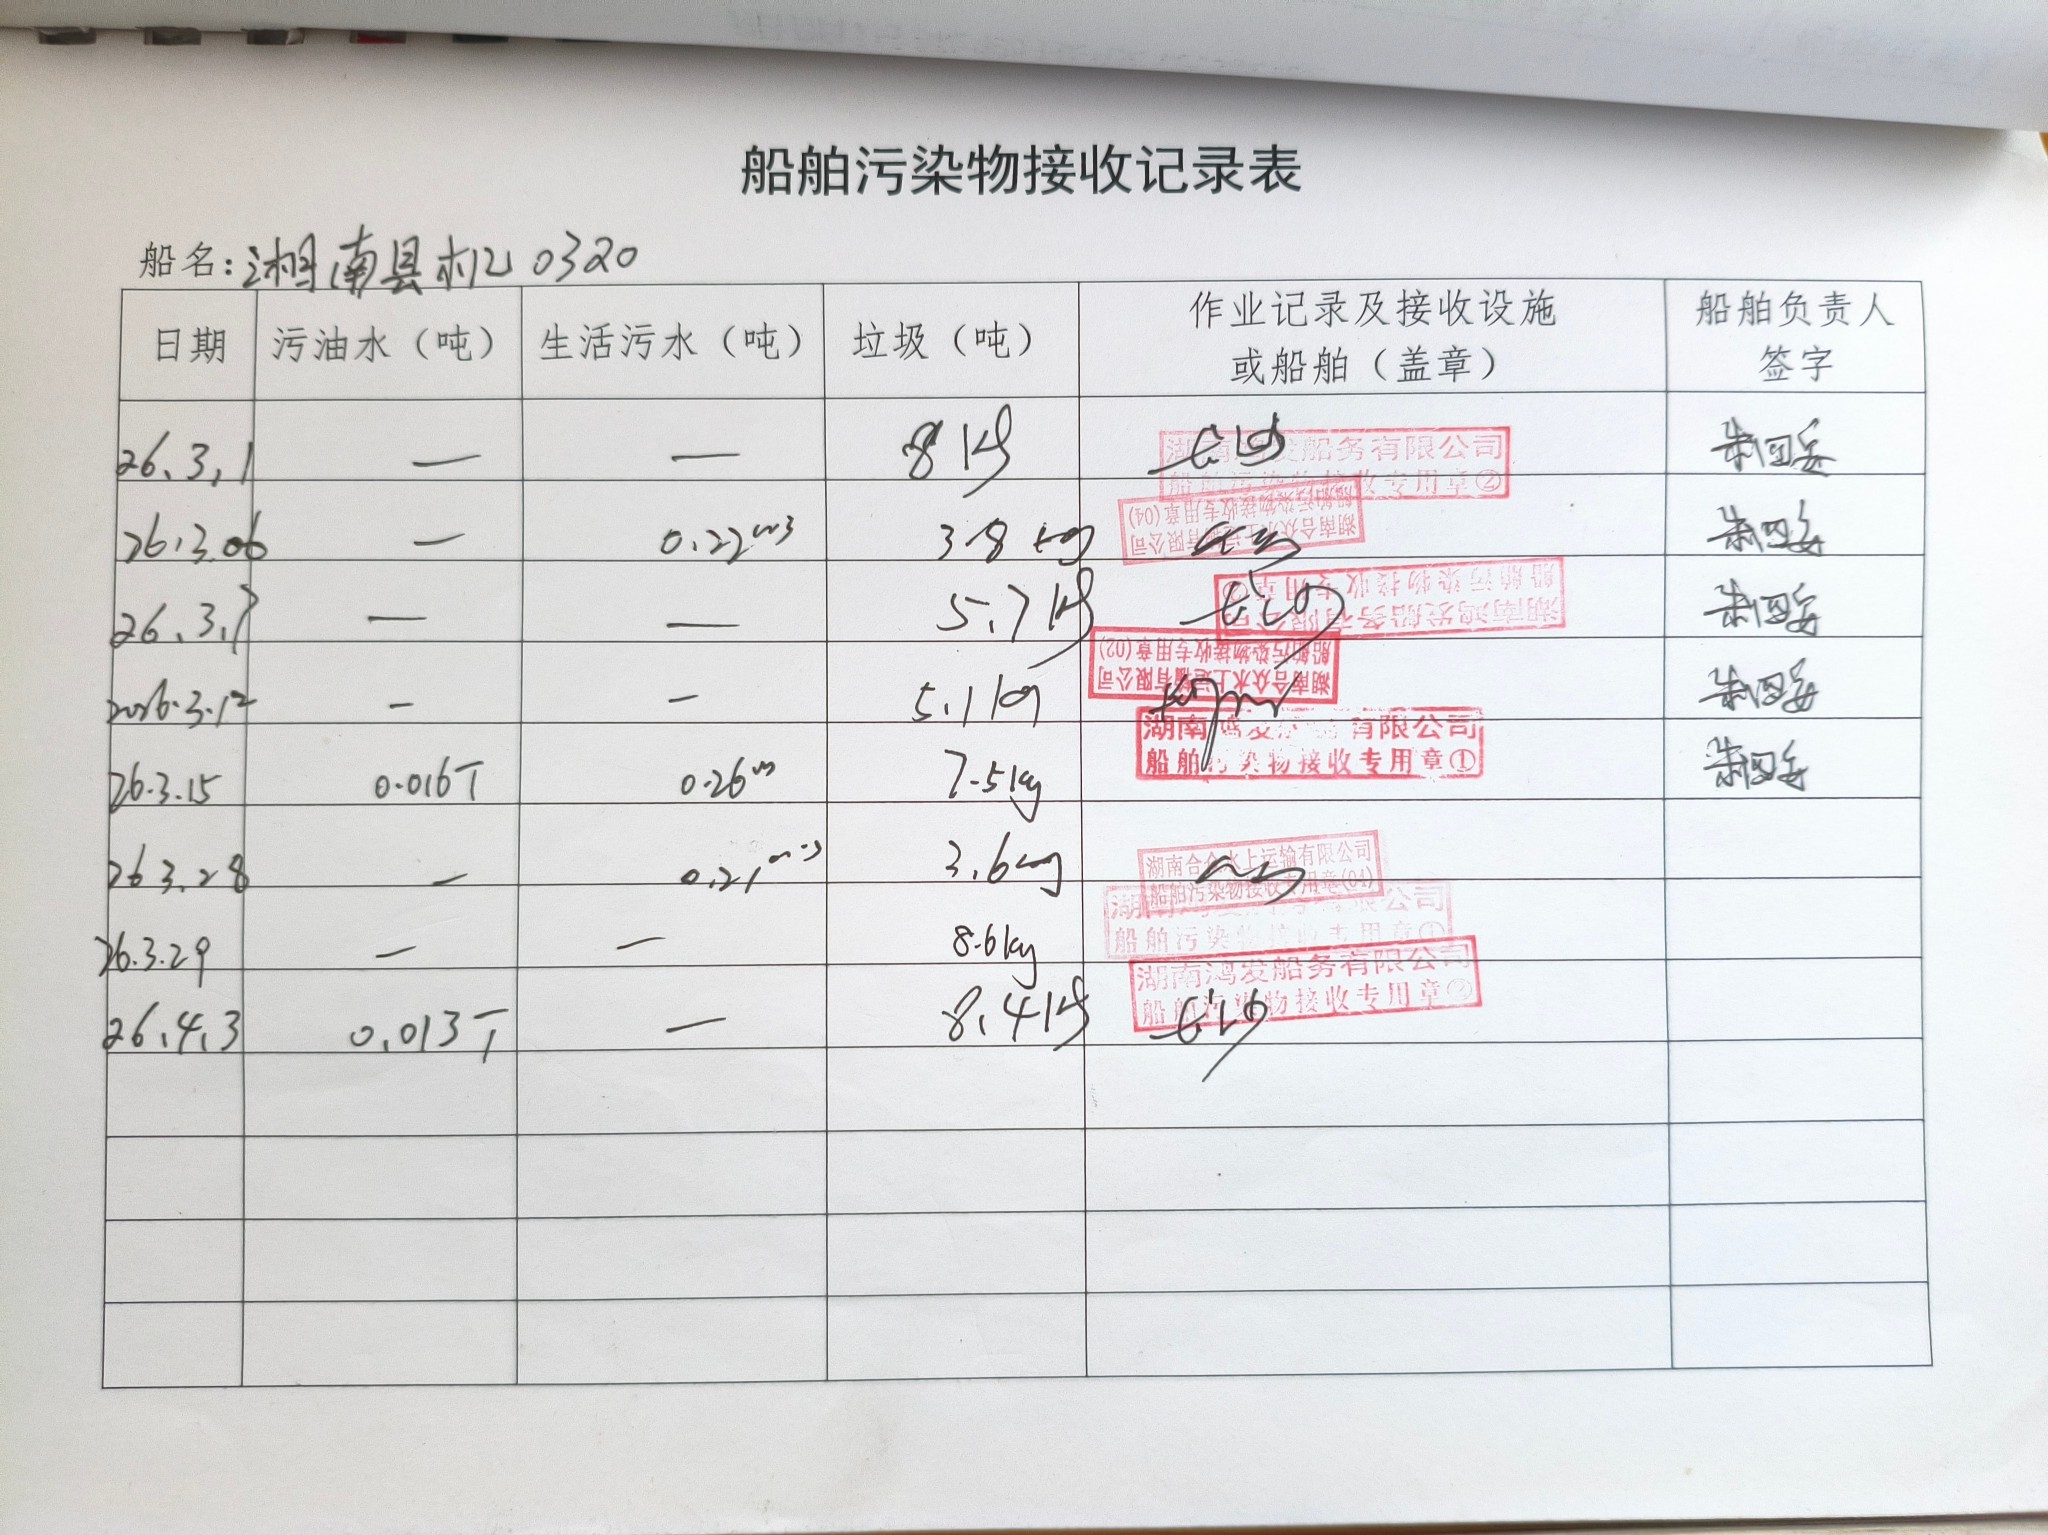 船舶污染物接收记录表
船名:湘南县机0320
日期 污油水(吨) 生活污水(吨) 垃圾(吨) 作业记录及接收设施或船舶(盖章) 船舶负责人签字
26.3.1 — — 8kg 湖南 发船务有限公司 船舶污染物接收专用章②
26.3.06 — 0.22m3 3.8kg 湖南合众水上运输有限公司 船舶污染物接收专用章(04)
26.3.7 — — 5.7kg 湖南鸿发船务有限公司 船舶污染物接收专用章
2026.3.12 — — 5.1kg 湖南合众水上运输有限公司 船舶污染物接收专用章(02)
26.3.15 0.016T 0.26m 7.5kg 湖南鸿发 有限公司 船舶污染物接收专用章①
26.3.28 — 0.21m3 3.6kg 湖南合众水上运输有限公司 船舶污染物接收专用章(04)
26.3.29 — — 8.6kg 湖 公司 船舶污染物接收专用章①
26.4.3 0.013T — 8.4kg 湖南鸿发船务有限公司 船舶污染物接收专用章②